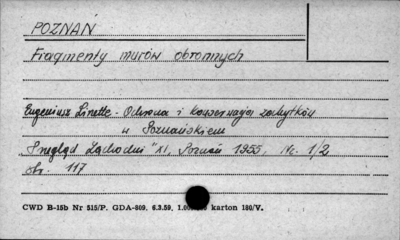 POZNAŃ
Fragmenty murów obronnych
Eugeniusz Linette - Ochrona i konserwacja zabytków
w Poznańskiem
Przegląd Zachodni" XI, Poznań 1955, Nr. 1/2
str. 117
CWD B-15b Nr 515/P. GDA-809. 6.3.59. 1.00 karton 180/V.